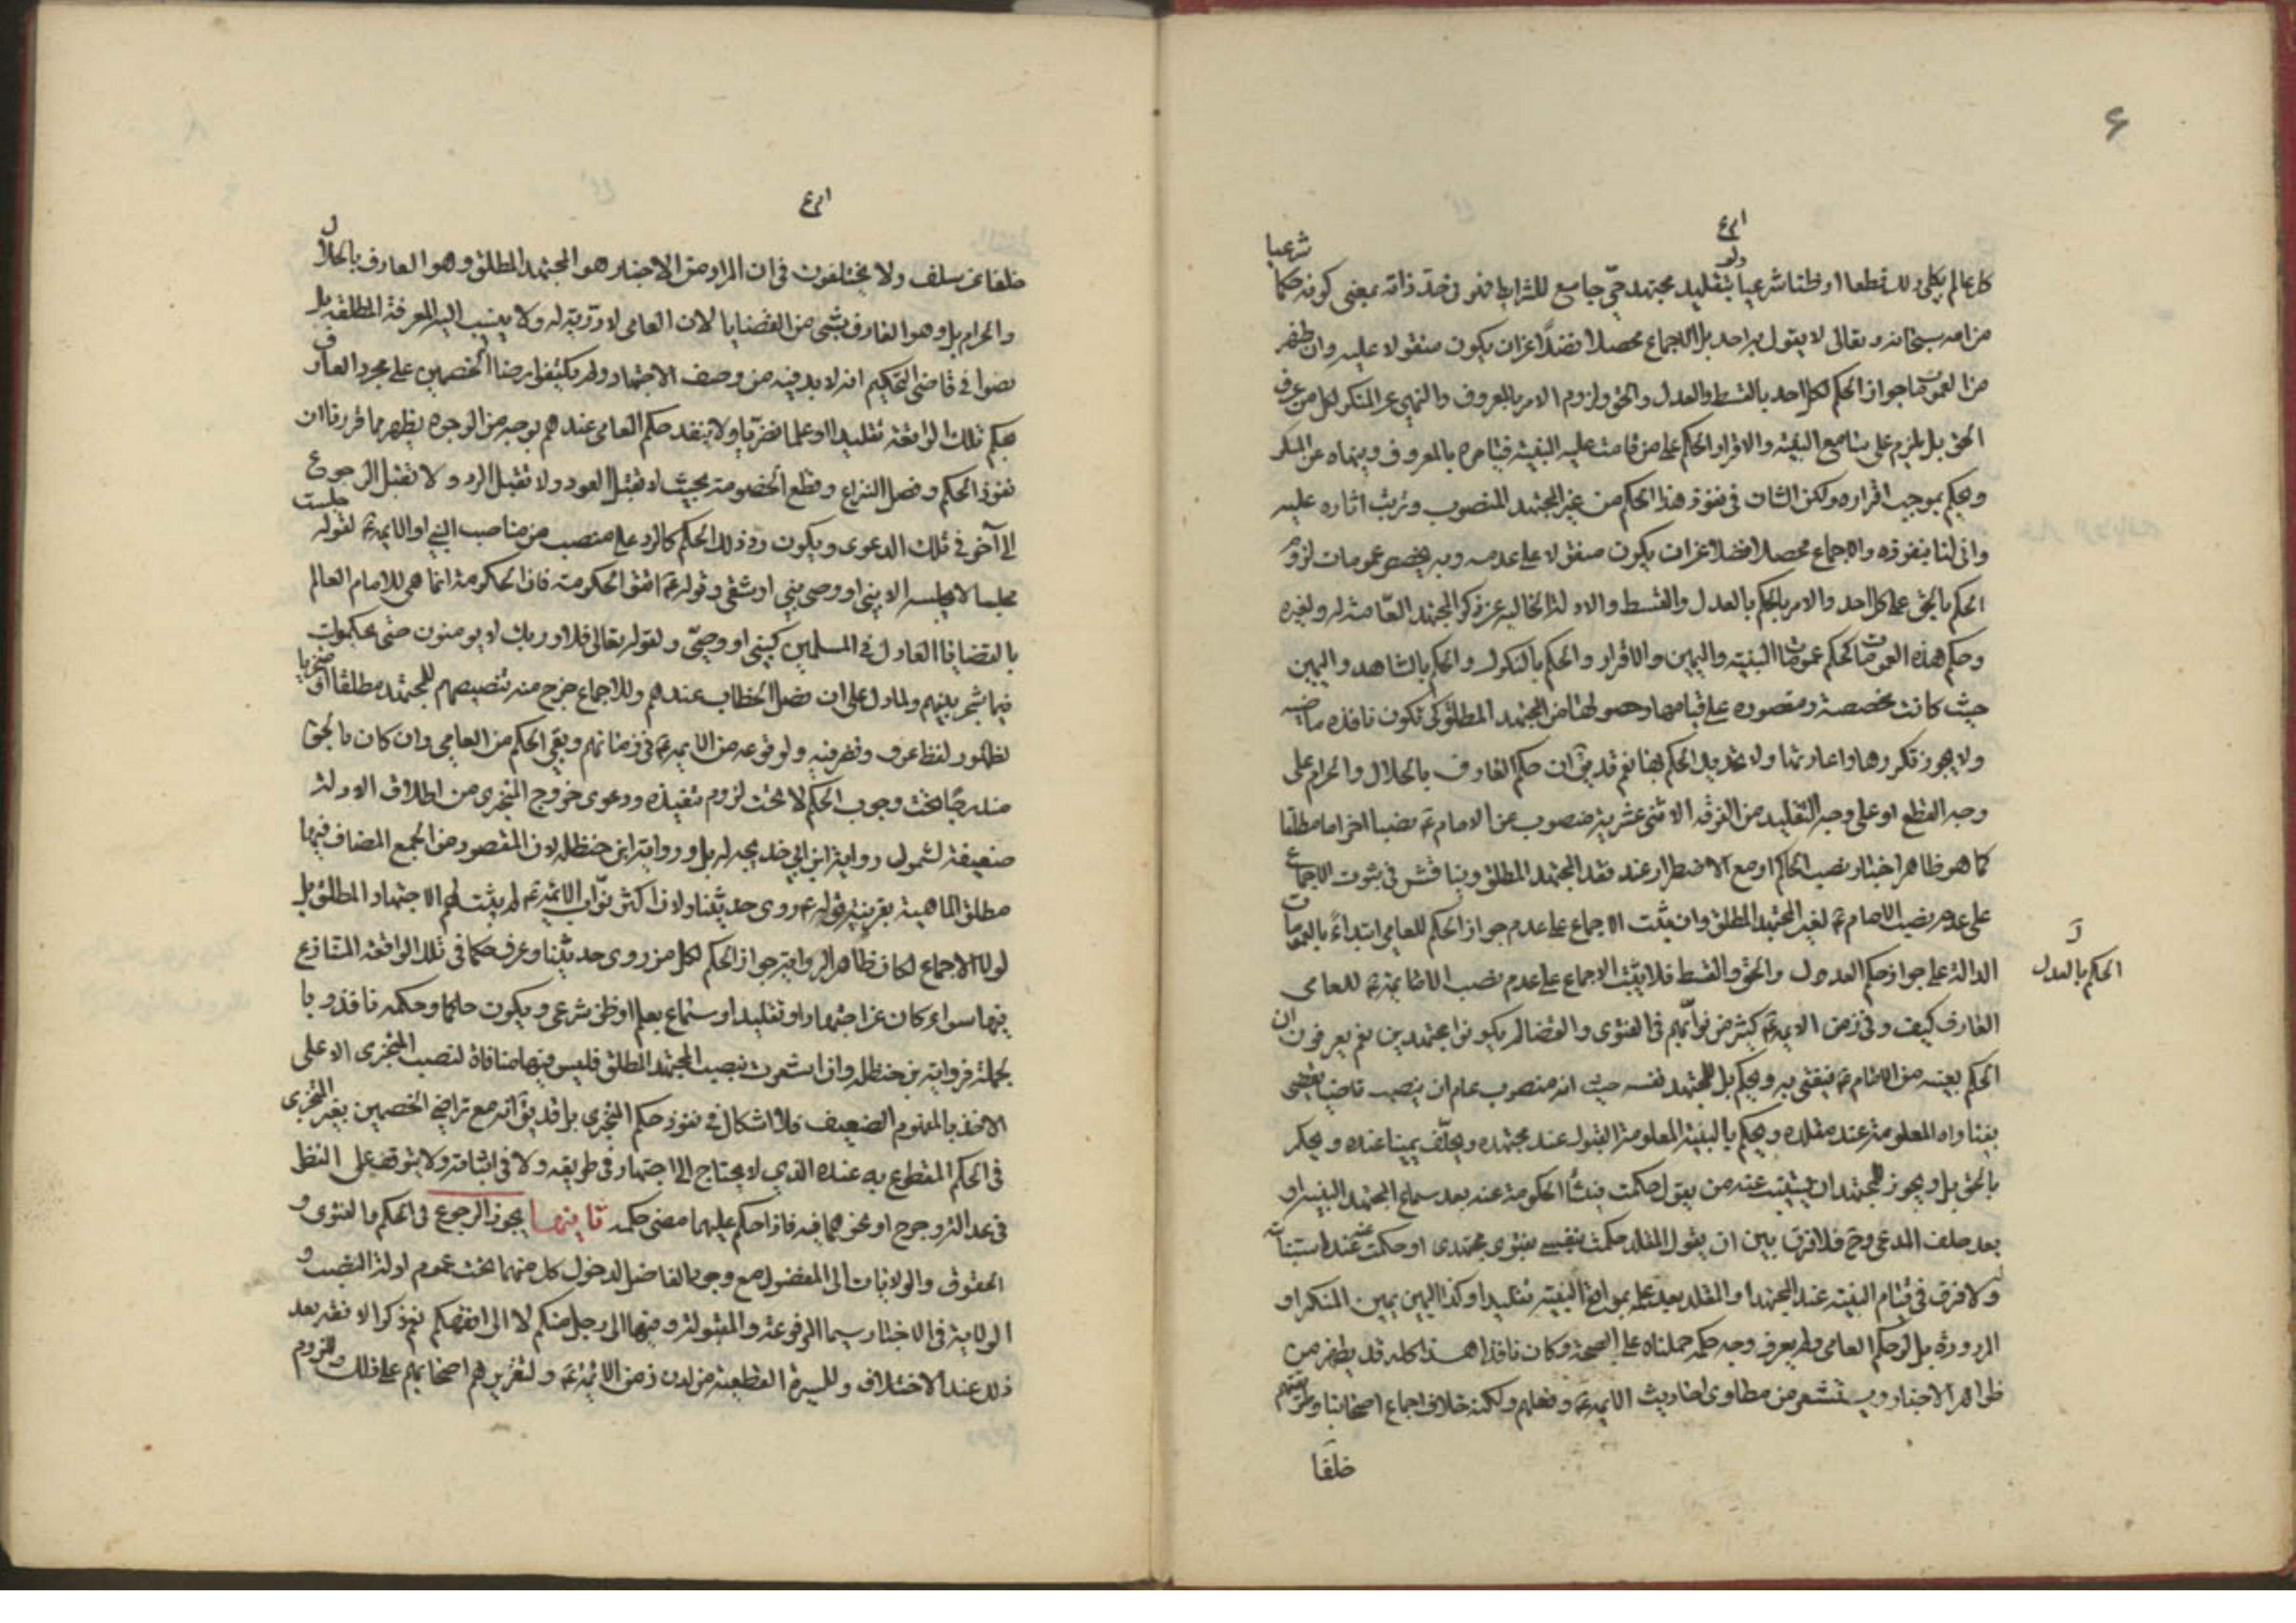 ٤
كل عالم بكلي ذلك قطعا او ظنا شرعيا ولو بتقليد مجتهد حيّ جامع للشرايط فهو في حدّ ذاته بمعنى كونه حكما شرعيا
من الله سبحانه وتعالى لا يقول به احد بل الاجماع محصلا فضلًا عن ان يكون منقولا عليه وان ظهر
من العمومات جواز الحكم لكل احد بالقسط والعدل والحق ولزوم الامر بالمعروف والنهي عن المنكر لكل من عرف
الحق بل يلزم على سامع البينة والاقرار الحكم على من قامت عليه البينة فيامره بالمعروف وينهاه عن المنكر
ويحكم بموجب اقراره ولكن الشان في نفوذ هذا الحكم من غير المجتهد المنصوب وترتب اثاره عليه
وانى لنا بنفوذه والاجماع محصلا فضلا عن ان يكون منقولا على عدمه وبه يخصص عمومات لزوم
الحكم بالحق على كل احد والامر بالحكم بالعدل والقسط والادلة الخالية عن ذكر المجتهد العامة له ولغيره
وحكم هذه العمومات كحكم عمومات البينة واليمين والاقرار والحكم بالنكول والحكم بالشاهد واليمين
حيث كانت مخصصة ومقصوره على قيامها وحصولها من المجتهد المطلق كي تكون نافذه ماضيه
ولا يجوز تكررها واعادتها ولا تجديد الحكم بها نعم قد يق ان حكم العارف بالحلال والحرام على
وجه القطع او على وجه التقليد من الفرقه الاثنى عشرية منصوب من الامام ع نصبا اخر اما مطلقا
كما هو ظاهر اخبار نصب الحاكم او مع الاضطرار عند فقد المجتهد المطلق ويناقش في ثبوت الاجماع
على عدم نصب الامام ع لغير المجتهد المطلق وان يثبت الاجماع على عدم جواز الحكم للعامي ابتداءً بالعمومات
الدالة على جواز حكم العدول والحق والقسط فلا يثبت الاجماع على عدم نصب الائمة ع للعامى
الحكم بالعدل
العارف كيف وفي زمن الايمة ع كثير من نوابهم في الفتوى والقضا لم يكونوا مجتهدين نعم يعرفون ان
الحكم بعينه من الامام ع فيفتى به ويحكم بل للمجتهد نفسه حيث انه منصوب عام ان ينصب قاضيا يقضى
بفتاواه المعلومة عند مقلده ويحكم بالبينة المعلومة القبول عند مجتهده ويحلّف يمينا عنده ويحكم
بالحق بل ويجوز للمجتهد ان يستنيب عنه من يقول حكمت فينشأ الحكومة عنه بعد سماع المجتهد البينة او
بعد حلف المدعى وح فلا فرق بين ان يقول المقلد حكمت بنفسي بفتوى مجتهدى او حكمت عنه عند استنابته
ولا فرق في قيام البينة عند المجتهد او المقلد بعد علمه بمواضع البينة تقليدا وكذا اليمين يمين المنكر او
المردودة بل لو حكم العامى ولم يعرف وجه حكمه حملناه على الصحة وكان نافذا هذا كله قد يظهر من
ظواهر الاخبار ويستشعر من مطاوى احاديث الايمة ع وفعلهم ولكنه خلاف اجماع اصحابنا وطريقتهم
خلفا
خلفا عن سلف ولا يختلفون في ان المراد من الاخبار هو المجتهد المطلق وهو العارف بالحلال
والحرام بل وهو العارف بشى من القضايا لان العامى لا دريّة له ولا ينسب اليه المعرفة المطلقة بل
نصوا في قاضى التحكيم انه لا بد فيه من وصف الاجتهاد ولم يكتفوا برضا الخصمين على مجرد العارف
بحكم تلك الواقعة تقليدا او علما ضروريا ولا ينفد حكم العامى عندهم بوجه من الوجوه يظهر مما قررنا ان
نفوذ الحكم وفصل النزاع وقطع الخصومة بحيث لا تقبل العود ولا تقبل الرد ولا تقبل الرجوع
الى آخر في تلك الدعوى ويكون رد ذلك الحكم كالرد على منصب من مناصب النبي او الايمة ع لقوله جلست
مجلسا لا يجلسه الا نبي او وصي نبي او شقى وقوله ع اتقوا الحكومة فان الحكومة انما هى للامام العالم
بالقضايا العادل في المسلمين كنبي او وصيّ ولقوله تعالى فلا وربك لا يومنون حتى يحكموك
فيما شجر بينهم ولما دل على ان فصل الخطاب عندهم وللاجماع خرج منه تنصيصهم للمجتهد مطلقا او متجزيا
لظهور لفظ عرف ونظر فيه ولوقوعه من الايمة ع في زمانهم وبقى الحكم من العامي وان كان بالحق
مندرجا تحت وجوب الحكم لا تحت لزوم تنفيذه ودعوى خروج المتجزى من اطلاق الادلة
ضعيفة لشمول رواية ابن ابي خديجه له بل ورواية ابن حنظله لان المقصود من الجمع المضاف فيها
مطلق الماهية بقرينة قوله ع روى حديثنا ولان اكثر نوّاب الائمة ع لم يثبت لهم الاجتهاد المطلق بل
لولا الاجماع لكان ظاهر الرواية جواز الحكم لكل من روى حديثنا وعرف حكما في تلك الواقعة المتنازع
فيها سواء كان عن اجتهاد او تقليد او سماع بعلم او ظن شرعى ويكون حاكما وحكمه نافذ وبا
لجملة فرواية بن حنظله وان اشعرت بنصب المجتهد المطلق فليس فيها منافاة لنصب المتجزى الا على
الاخذ بالمفهوم الضعيف فلا اشكال في نفوذ حكم المتجزى بل قد يق انه مع تراضي الخصمين بغير المتجزى
في الحكم المقطوع به عنده الذي لا يحتاج الى اجتهاد في طريقه ولا في اثباته ولا يتوقف على النظر
في عدالة وجرح او نحوهما فيه فاذا حكم عليهما مضى حكمه ثانيها يجوز الرجوع في الحكم بالفتوى و
الحقوق والولايات الى المفضول مع وجود الفاضل لدخول كل منهما تحت عموم ادلة النصب و
الولاية في الاخبار سيما المرفوعة والمقبولة وفيها الى رجل منكم لا الى افقهكم نعم ذكر الافقه بعد
ذلك عند الاختلاف وللسيرة القطعية من لدن زمن الائمة ع ولتقريرهم اصحابهم على ذلك وللزوم